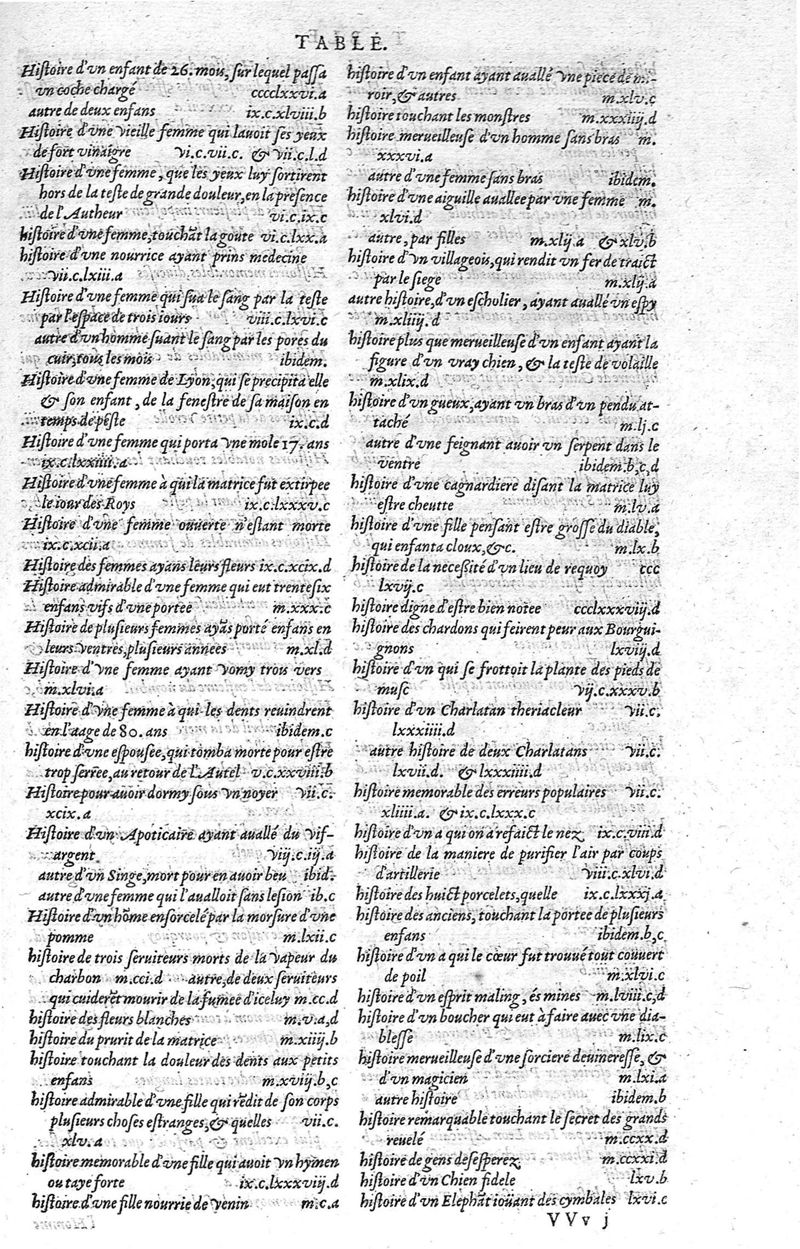 TABLE.
Histoire d'vn enfant de 26. mou, sur lequel passa
vn coche chargé cccclxxvi.a
autre de deux enfans ix.c.xlviii.b
Histoire d'vne vieille femme qui lauoit ses yeux
de fort vinaigre vi.c.vii.c. & vii.c.l.d
Histoire d'vne femme, que les yeux luy sortirent
hors de la teste de grande douleur, en la presence
de l'Autheur vi.c.ix.c
histoire d'vne femme, touchãt la goute vi.c.lxx.a
histoire d'vne nourrice ayant prins medecine
vii.c.lxiii.a
Histoire d'vne femme qui sua le sang par la teste
par l'espace de trois iours viii.c.lxvi.c
autre d'vn homme suant le sang par les pores du
cuir, tous les mois ibidem.
Histoire d'vne femme de Lyon, qui se precipita elle
& son enfant, de la fenestre de sa maison en
temps de peste ix.c.d
Histoire d'vne femme qui porta vne mole 17. ans
ix.c.lxxiiii.a
Histoire d'vne femme à qui la matrice fut extirpee
le iour des Roys ix.c.lxxxv.c
Histoire d'vne femme ouuerte n'estant morte
ix.c.xcii.a
Histoire des femmes ayans leurs fleurs ix.c.xcix.d
Histoire admirable d'vne femme qui eut trente six
enfans vifs d'vne portee m.xxx.c
Histoire de plusieurs femmes ayãs porté enfans en
leurs ventres, plusieurs annees m.xl.d
Histoire d'vne femme ayant vomy trou vers
m.xlvi.a
Histoire d'vne femme à qui les dents reuindrent
en l'aage de 80. ans ibidem.c
histoire d'vne espousee, qui tomba morte pour estre
trop serree, au retour de l'Autel v.c.xxviii.b
Histoire pour auoir dormy sous vn noyer vii.c.
xcix.a
Histoire d'vn Apoticaire ayant auallé du vif-
argent vij.c.iij.a
autre d'vn Singe, mort pour en auoir beu ibid.
autre d'vne femme qui l'aualloit sans lesion ib.c
Histoire d'vn hõme ensorcelé par la morsure d'vne
pomme m.lxii.c
histoire de trois seruiteurs morts de la vapeur du
charbon m.cci.d autre, de deux seruiteurs
qui cuiderẽt mourir de la fumee d'iceluy m.cc.d
histoire des fleurs blanches m.v.a,d
histoire du prurit de la matrice m.xiiij.b
histoire touchant la douleur des dents aux petits
enfans m.xvij.b,c
histoire admirable d'vne fille qui rẽdit de son corps
plusieurs choses estranges, & quelles vii.c.
xlv.a
histoire memorable d'vne fille qui auoit vn hymen
ou taye forte ix.c.lxxxvij.d
histoire d'vne fille nourrie de venin m.c.a
histoire d'vn enfant ayant auallé vne piece de mi-
roir, & autres m.xlv.c
histoire touchant les monstres m.xxxiiij.d
histoire merueilleuse d'vn homme sans bras m.
xxxvi.a
autre d'vne femme sans bras ibidem.
histoire d'vne aiguille auallee par vne femme m.
xlvi.d
autre, par filles m.xlij.a & xlv.b
histoire d'vn villageois, qui rendit vn fer de traict
par le siege m.xlij.a
autre histoire, d'vn escholier, ayant auallé vn espy
m.xliiij.d
histoire plus que merueilleuse d'vn enfant ayant la
figure d'vn vray chien, & la teste de volaille
m.xlix.d
histoire d'vn gueux, ayant vn bras d'vn pendu at-
taché m.lj.c
autre d'vne feignant auoir vn serpent dans le
ventre ibidem.b,c,d
histoire d'vne cagnardiere disant la matrice luy
estre cheutte m.lv.a
histoire d'vne fille pensant estre grosse du diable,
qui enfanta cloux, &c. m.lx.b
histoire de la necessité d'vn lieu de requoy ccc
lxvij.c
histoire digne d'estre bien notee ccclxxxvij.d
histoire des chardons qui feirent peur aux Bourgui-
gnons lxvij.d
histoire d'vn qui se frottoit la plante des pieds de
musc vij.c.xxxv.b
histoire d'vn Charlatan theriacleur vii.c.
lxxxiiii.d
autre histoire de deux Charlatans vii.c.
lxvii.d. & lxxxiiii.d
histoire memorable des erreurs populaires vii.c.
xliiii.a. & ix.c.lxxx.c
histoire d'vn a qui on a refaict le nez ix.c.viii.d
histoire de la maniere de purifier l'air par coups
d'artillerie viii.c.xlvi.d
histoire des huict porcelets, quelle ix.c.lxxxj.a
histoire des anciens, touchant la portee de plusieurs
enfans ibidem.b,c
histoire d'vn a qui le cœur fut trouué tout couuert
de poil m.xlvi.c
histoire d'vn esprit maling, és mines m.lviii.c,d
histoire d'vn boucher qui eut à faire auec vne dia-
blesse m.lix.c
histoire merueilleuse d'vne sorciere deuineresse, &
d'vn magicien m.lxi.a
autre histoire ibidem.b
histoire remarquable touchant le secret des grands
reuelé m.ccxx.d
histoire de gens desesperez m.ccxxi.d
histoire d'vn Chien fidele lxv.b
histoire d'vn Elephãt ioüant des cymbales lxvi.c
VVv j